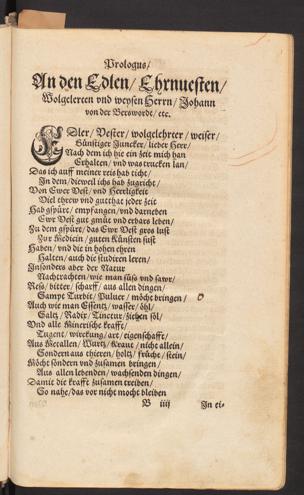 Prologus/
An den Edlen/ Ehrnuesten/
Wolgelerten vnd weysen Herrn/ Johann
von der Berswordt/ etc.
EDler/ Vester/ wolgelehrter/ weiser/
Günstiger Juncker/ lieber Herr/
Nach dem ich hie ein zeit mich han
Erhalten/ vnd was trucken lan/
Das ich auff meiner reis hab ticht/
In dem/ dieweil ichs hab zugricht/
Von Ewr Vest/ vnd Herrligkeit
Viel threw vnd gutthat jeder zeit
Hab gspürt/ empfangen/ vnd darneben
Ewr Vest gut gmüt vnd erbars leben/
Zu dem gspürt/ das Ewr Vest gros lust
Zur Medicin/ guten Künsten sust
Haben/ vnd die in hohen ehren
Halten/ auch die studiren leren/
Insonders aber der Natur
Nachtrachten/ wie man süss vnd sawr/
Ress/ bitter/ scharff/ aus allen dingen/
Sampt Turbit/ Puluer/ möcht bringen/
Auch wie man Essentz/ wasser/ öhl/
Saltz/ Radix/ Tinctur/ ziehen söl/
Vnd alle Minerische krafft/
Tugent/ wirckung/ art/ eigenschafft/
Aus Metallen/ Wurtz/ Kraut/ nicht allein/
Sondern aus thieren/ holtz/ frücht/ stein/
Möcht sondern vnd zusamen bringen/
Aus allen lebenden/ wachsenden dingen/
Damit die krafft zusamen treiben/
So nahe/ das vor nicht mocht bleiben
B iiij In ei-